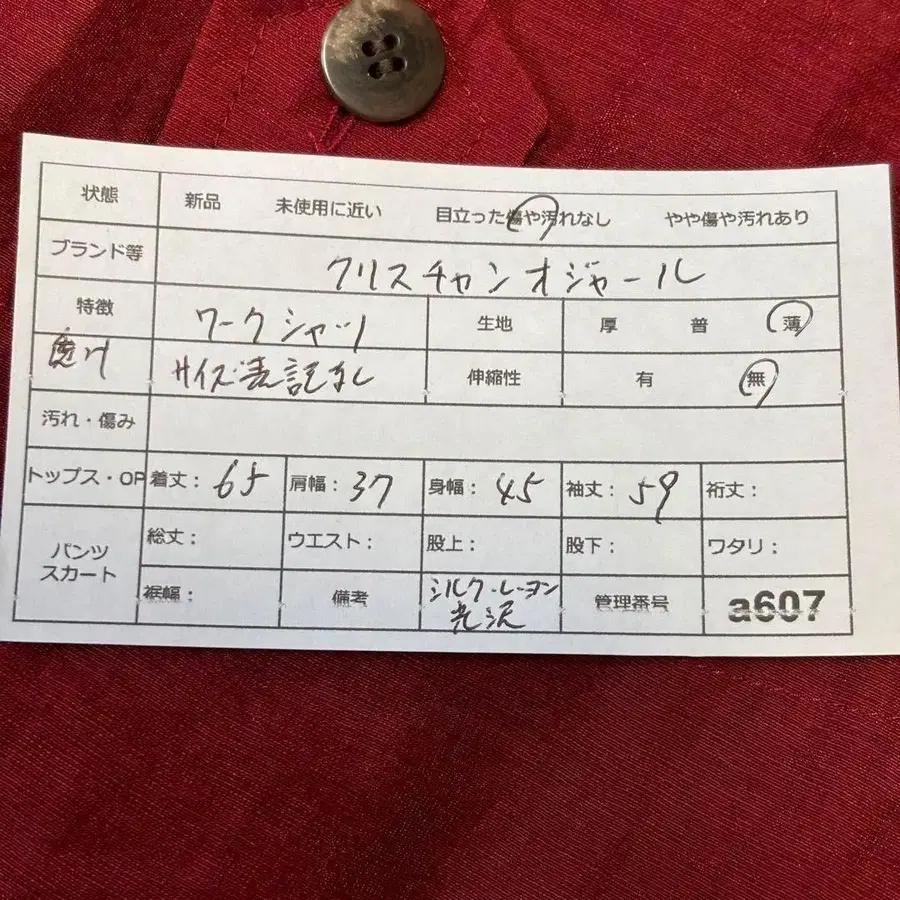 状態 新品 未使用に近い 目立った傷や汚れなし やや傷や汚れあり
ブランド等 クリスチャンオジャール
特徴 ワークシャツ 生地 厚 普 薄
サイズ表記なし 伸縮性 有 無
汚れ・傷み
トップス・OP 着丈： 65 肩幅： 37 身幅： 45 袖丈： 59 裄丈：
パンツ スカート 総丈： ウエスト： 股上： 股下： ワタリ：
裾幅： 備考 シルク・レーヨン 光沢 管理番号 a607